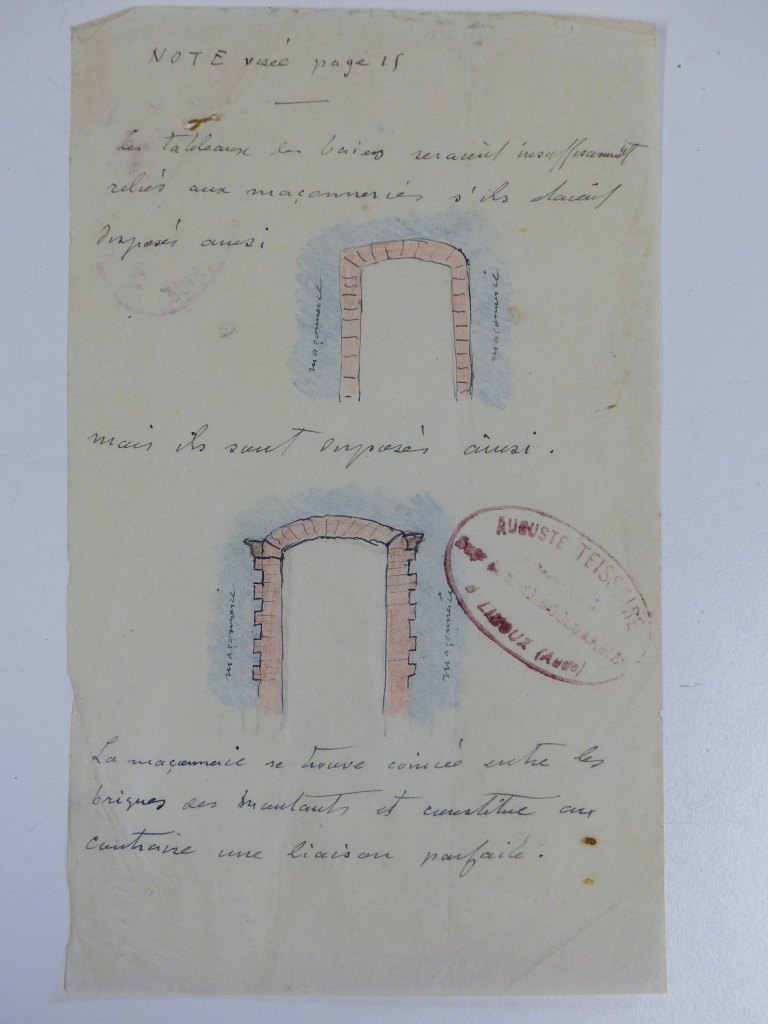 NOTE visée page 15
Les tableaux des baies seraient insuffisamment
reliés aux maçonneries s'ils étaient
disposés ainsi
maçonnerie
maçonnerie
mais ils sont disposés ainsi.
maçonnerie
maçonnerie
AUGUSTE TEISSEIRE
à LIMOUX (Aude)
La maçonnerie se trouve coincée entre les
briques des montants et constitue au
contraire une liaison parfaite.